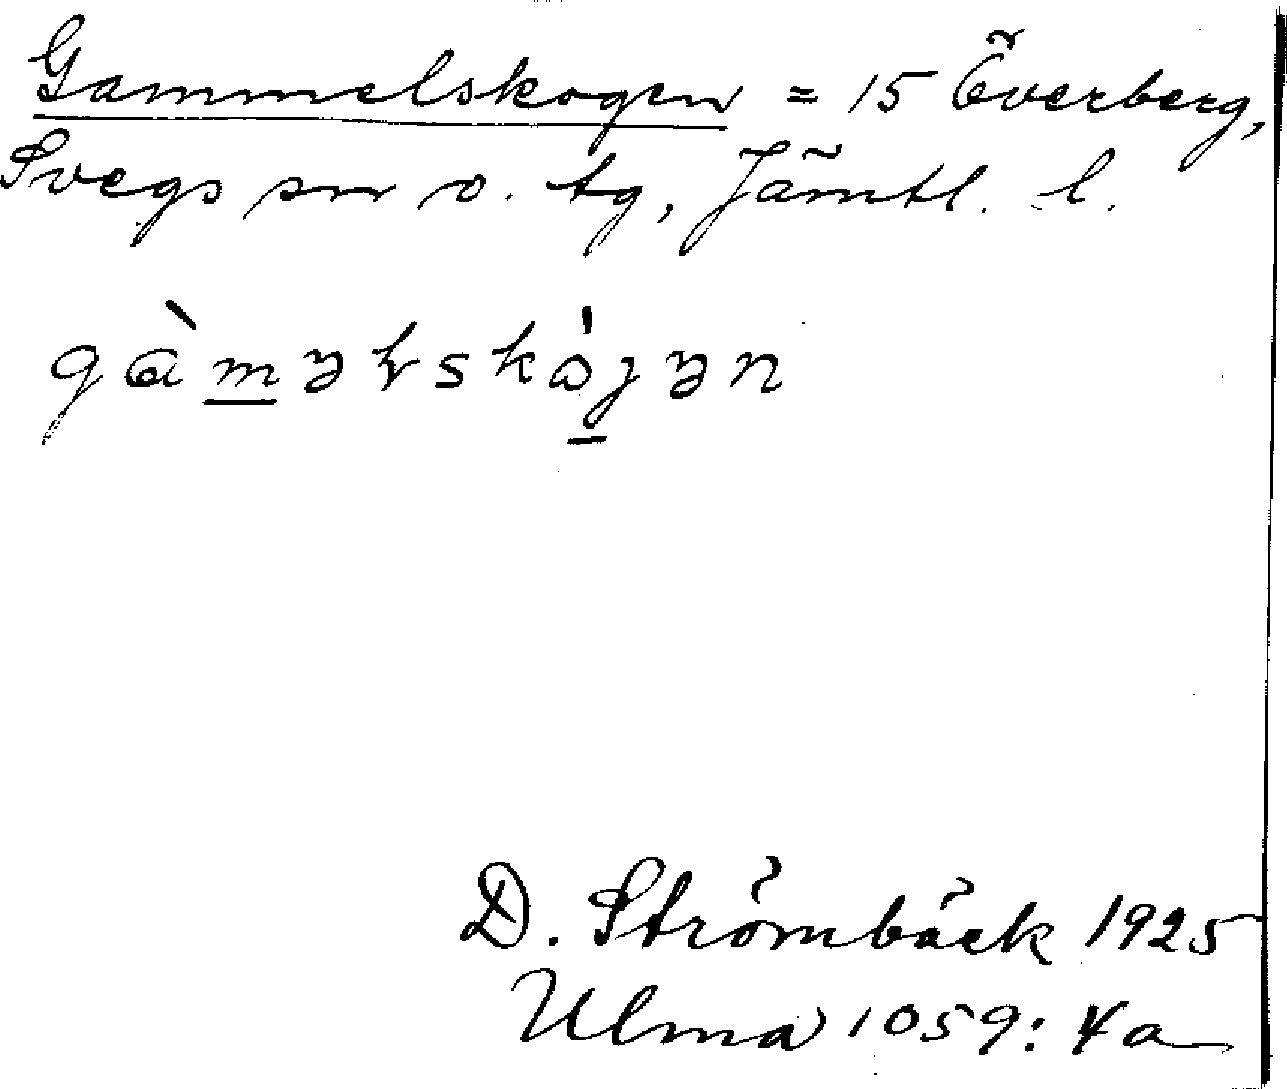 Gammelskogen = 15 Överberg,
Svegs sn o. tg, Jämtl. l.
D. Strömbäck 1925
Ulma 1059: 4a